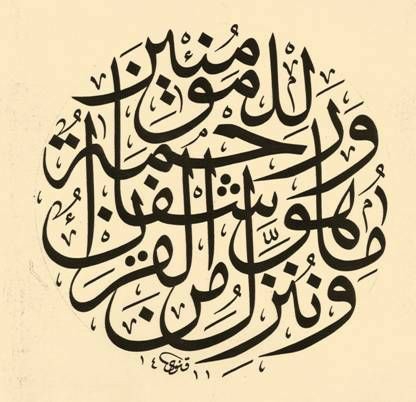 وَنُنَزِّلُ مِنَ الْقُرْآنِ
مَا هُوَ شِفَاءٌ
وَرَحْمَةٌ
لِلْمُؤْمِنِينَ
١٤ ١١